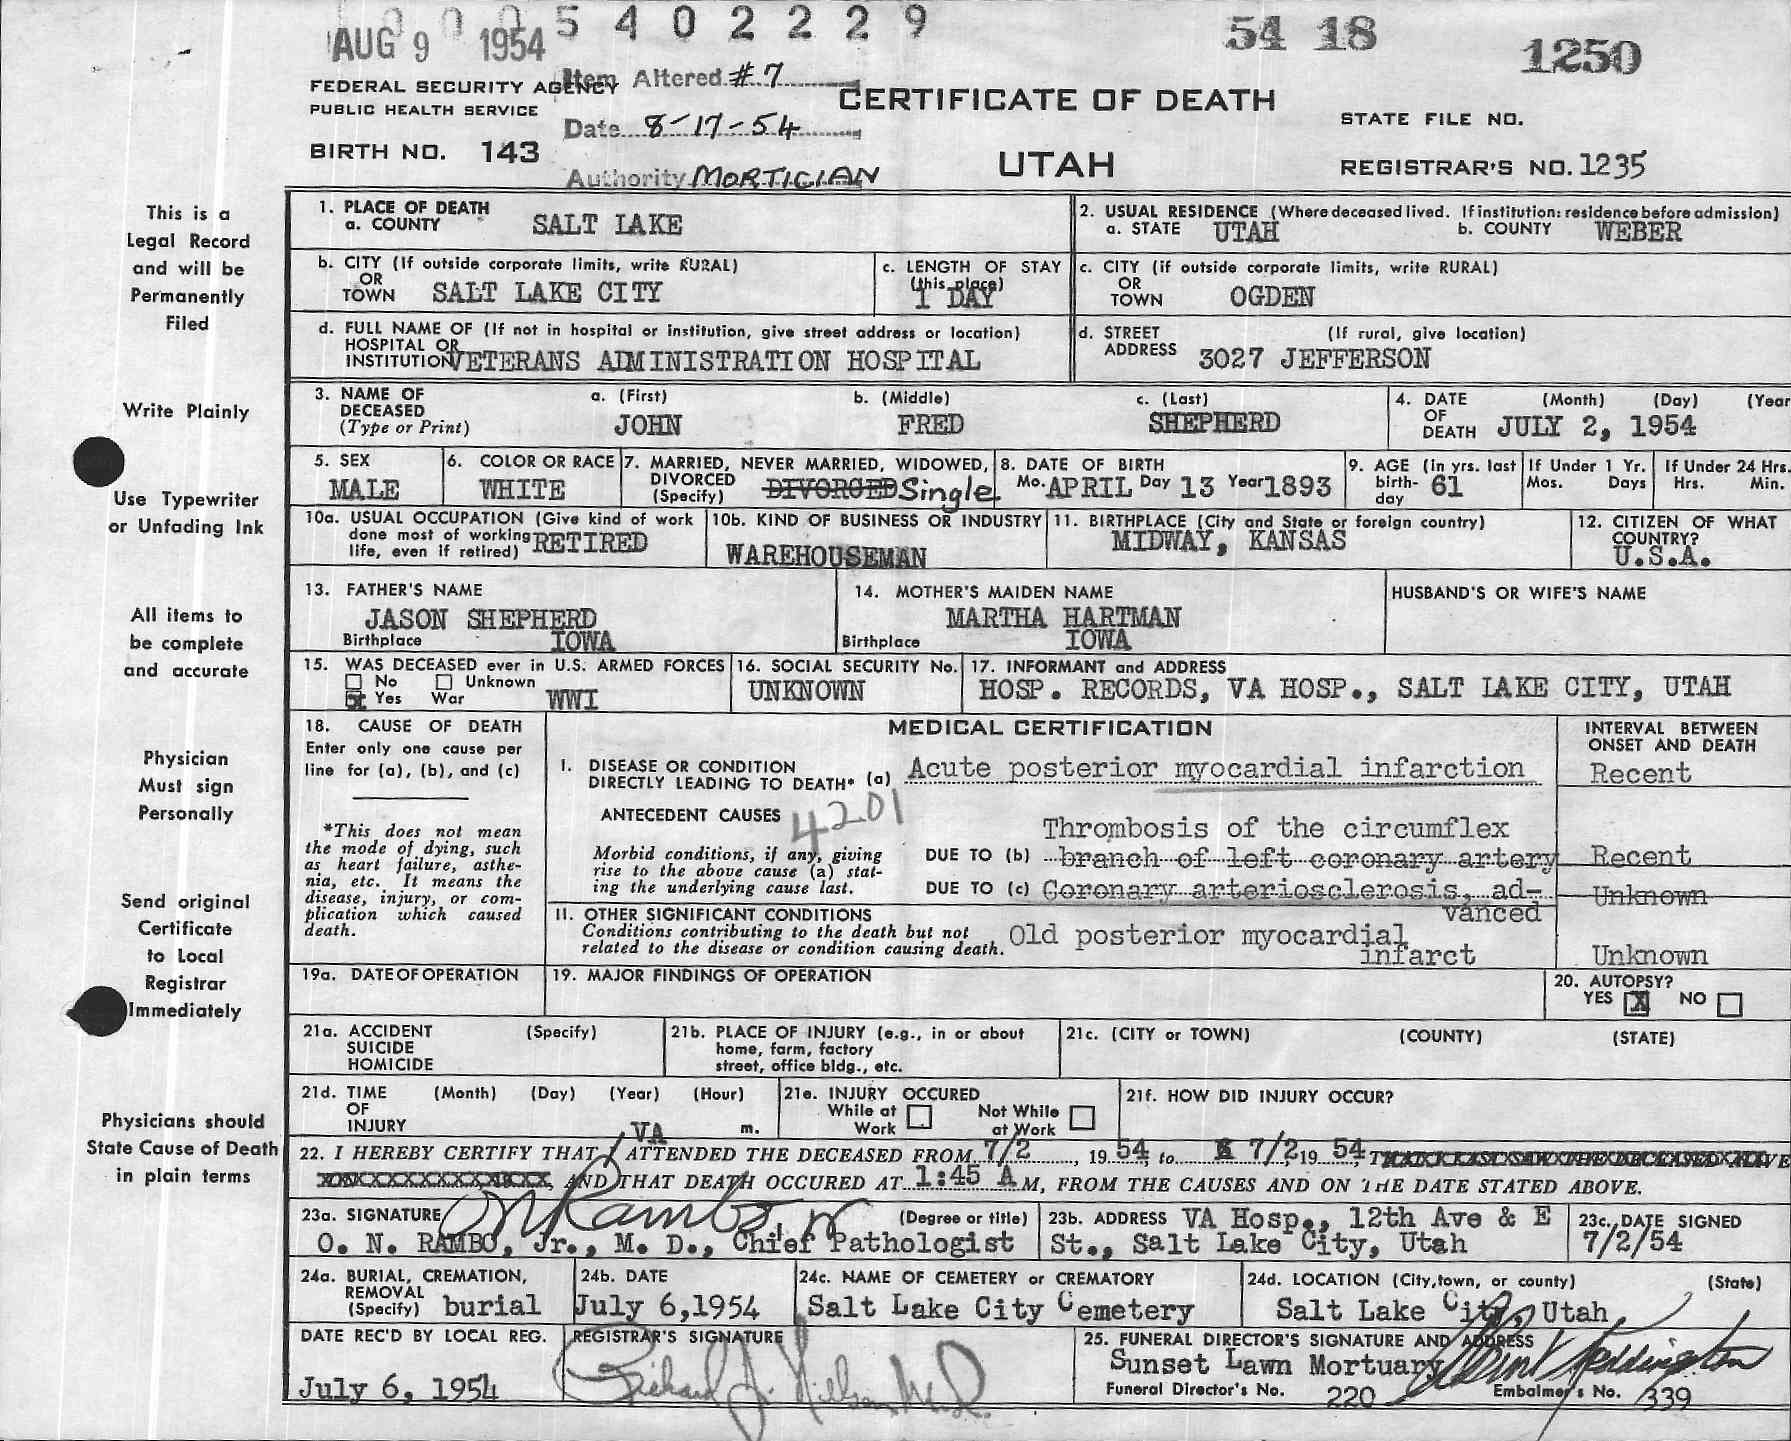 0005402229
AUG 9 1954
54 18
1250
FEDERAL SECURITY AGENCY
PUBLIC HEALTH SERVICE
BIRTH NO. 143
Item Altered #7
Date 8-17-54
Authority MORTICIAN
CERTIFICATE OF DEATH
UTAH
STATE FILE NO.
REGISTRAR'S NO. 1235
This is a
Legal Record
and will be
Permanently
Filed
Write Plainly
Use Typewriter
or Unfading Ink
All items to
be complete
and accurate
Physician
Must sign
Personally
Send original
Certificate
to Local
Registrar
Immediately
Physicians should
State Cause of Death
in plain terms
1. PLACE OF DEATH
a. COUNTY SALT LAKE
2. USUAL RESIDENCE (Where deceased lived. If institution: residence before admission)
a. STATE UTAH b. COUNTY WEBER
b. CITY (If outside corporate limits, write RURAL)
OR
TOWN SALT LAKE CITY
c. LENGTH OF STAY
(this place)
1 DAY
c. CITY (if outside corporate limits, write RURAL)
OR
TOWN OGDEN
d. FULL NAME OF (If not in hospital or institution, give street address or location)
HOSPITAL OR
INSTITUTION VETERANS ADMINISTRATION HOSPITAL
d. STREET (If rural, give location)
ADDRESS 3027 JEFFERSON
3. NAME OF
DECEASED
(Type or Print)
a. (First) b. (Middle) c. (Last)
JOHN FRED SHEPHERD
4. DATE (Month) (Day) (Year
OF
DEATH JULY 2, 1954
5. SEX
MALE
6. COLOR OR RACE
WHITE
7. MARRIED, NEVER MARRIED, WIDOWED,
DIVORCED
(Specify) DIVORCED Single
8. DATE OF BIRTH
Mo. APRIL Day 13 Year 1893
9. AGE (In yrs. last
birth-
day 61
If Under 1 Yr.
Mos. Days
If Under 24 Hrs.
Hrs. Min.
10a. USUAL OCCUPATION (Give kind of work
done most of working
life, even if retired) RETIRED
10b. KIND OF BUSINESS OR INDUSTRY
WAREHOUSEMAN
11. BIRTHPLACE (City and State or foreign country)
MIDWAY, KANSAS
12. CITIZEN OF WHAT
COUNTRY?
U.S.A.
13. FATHER'S NAME
JASON SHEPHERD
Birthplace IOWA
14. MOTHER'S MAIDEN NAME
MARTHA HARTMAN
Birthplace IOWA
HUSBAND'S OR WIFE'S NAME
15. WAS DECEASED ever in U.S. ARMED FORCES
No Unknown
Yes War WWI
16. SOCIAL SECURITY No.
UNKNOWN
17. INFORMANT and ADDRESS
HOSP. RECORDS, VA HOSP., SALT LAKE CITY, UTAH
18. CAUSE OF DEATH
Enter only one cause per
line for (a), (b), and (c)
*This does not mean
the mode of dying, such
as heart failure, asthe-
nia, etc. It means the
disease, injury, or com-
plication which caused
death.
MEDICAL CERTIFICATION
INTERVAL BETWEEN
ONSET AND DEATH
I. DISEASE OR CONDITION
DIRECTLY LEADING TO DEATH* (a) Acute posterior myocardial infarction Recent
ANTECEDENT CAUSES 4201
Morbid conditions, if any, giving
rise to the above cause (a) stat-
ing the underlying cause last.
Thrombosis of the circumflex
DUE TO (b) branch of left coronary artery Recent
DUE TO (c) Coronary arteriosclerosis, ad-
vanced Unknown
II. OTHER SIGNIFICANT CONDITIONS
Conditions contributing to the death but not
related to the disease or condition causing death.
Old posterior myocardial
infarct Unknown
19a. DATE OF OPERATION
19. MAJOR FINDINGS OF OPERATION
20. AUTOPSY?
YES X NO
21a. ACCIDENT (Specify)
SUICIDE
HOMICIDE
21b. PLACE OF INJURY (e.g., in or about
home, farm, factory
street, office bldg., etc.
21c. (CITY or TOWN) (COUNTY) (STATE)
21d. TIME (Month) (Day) (Year) (Hour)
OF
INJURY m.
21e. INJURY OCCURED
While at Work Not While at Work
21f. HOW DID INJURY OCCUR?
VA
22. I HEREBY CERTIFY THAT / ATTENDED THE DECEASED FROM 7/2, 19 54, to 7/2 19 54, THAT I LAST SAW THE DECEASED ALIVE
AND THAT DEATH OCCURED AT 1:45 A M, FROM THE CAUSES AND ON THE DATE STATED ABOVE.
23a. SIGNATURE ON Rambo Jr (Degree or title)
O. N. RAMBO, Jr., M. D., Chief Pathologist
23b. ADDRESS VA Hosp., 12th Ave & E
St., Salt Lake City, Utah
23c. DATE SIGNED
7/2/54
24a. BURIAL, CREMATION,
REMOVAL
(Specify) burial
24b. DATE
July 6,1954
24c. NAME OF CEMETERY or CREMATORY
Salt Lake City Cemetery
24d. LOCATION (City,town, or county) (State)
Salt Lake City, Utah
DATE REC'D BY LOCAL REG.
July 6, 1954
REGISTRAR'S SIGNATURE
Richard J. Nielsen M.D.
25. FUNERAL DIRECTOR'S SIGNATURE AND ADDRESS
Sunset Lawn Mortuary
Funeral Director's No. 220 Embalmer's No. 339